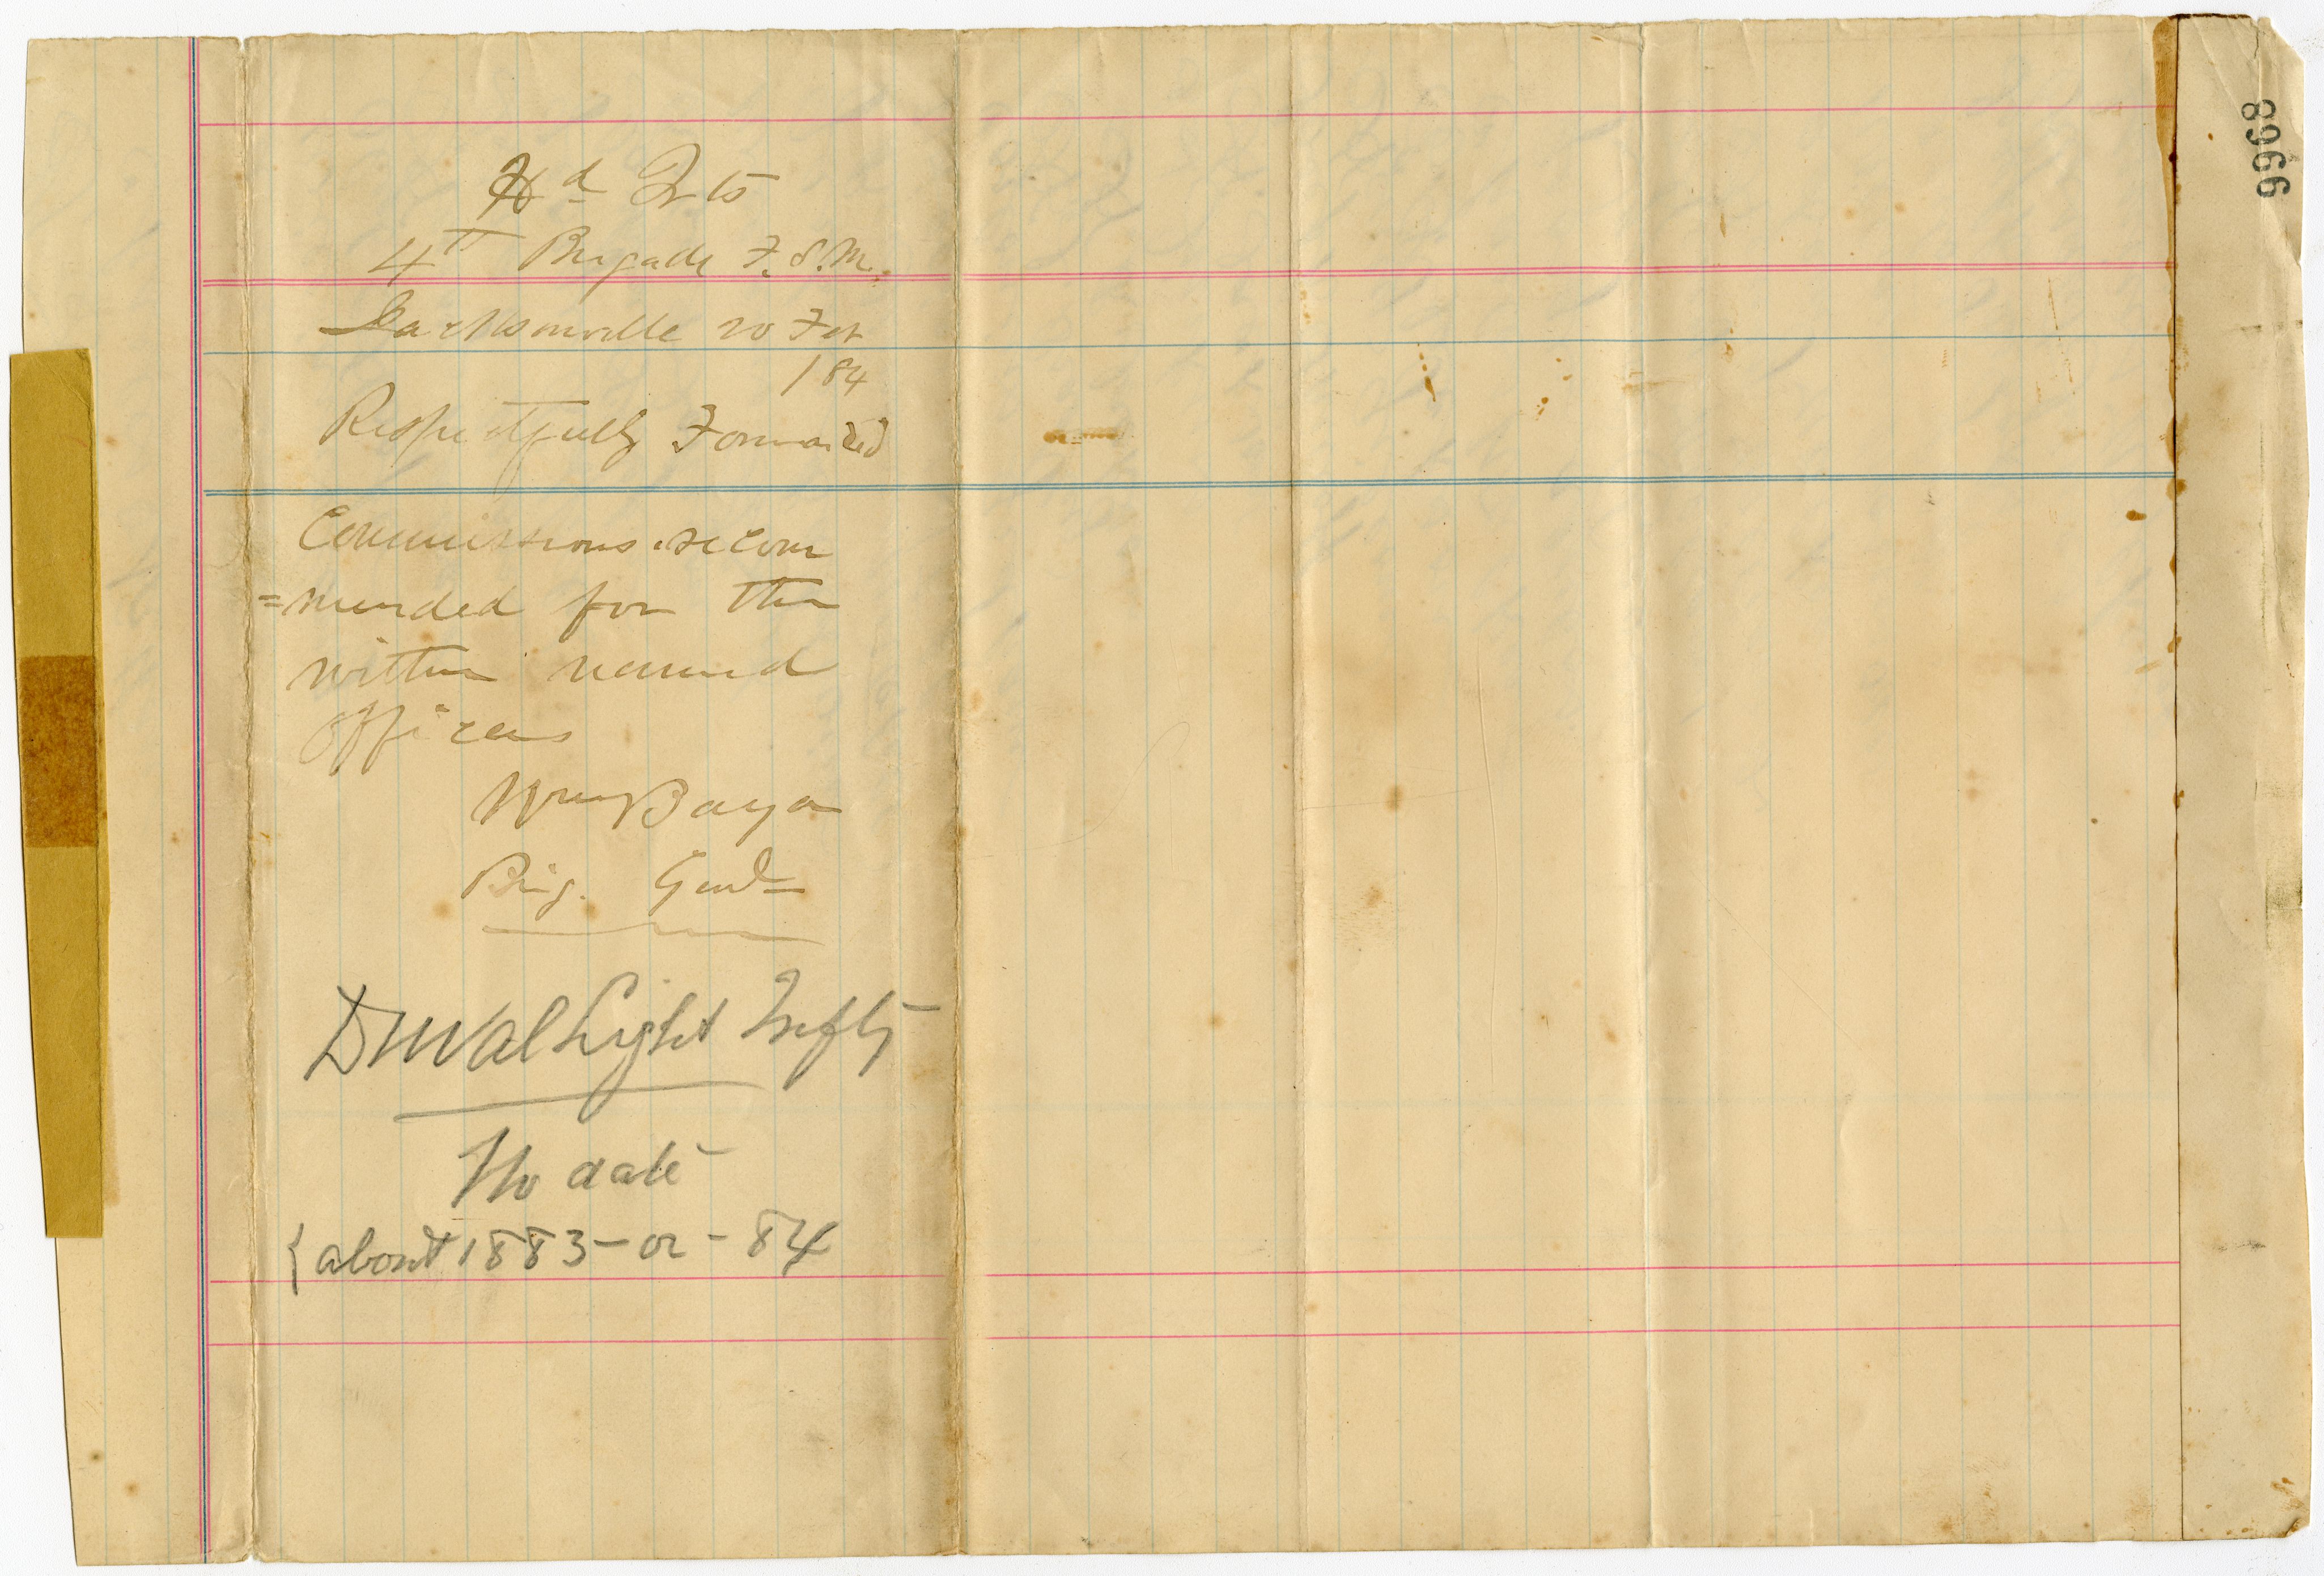 Hd Qrts
4th Brigade F. S. M.
Jacksonville 20 Feb
/84
Respectfully Forwarded
Commissions recom
=mended for the
within named
Officers
Wm Baya
Brig. Genl
Duval Light Infty
No date
{ about 1883 - or - 84
8966